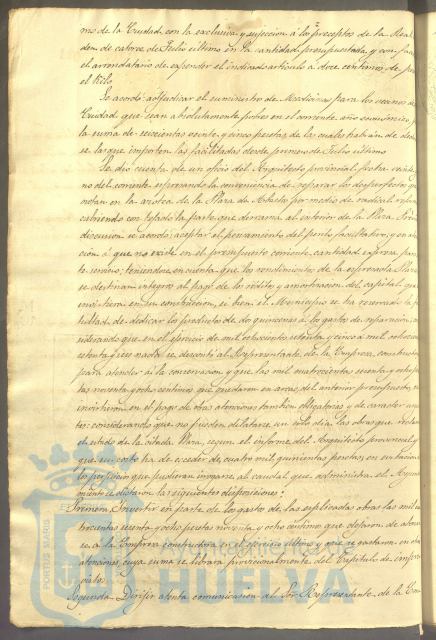 mo de la Ciudad con la exclusiva y sujeccion á los preceptos de la Real
den de catorce de Julio último en la cantidad presupuestada y con
el arrendatario de espender el indicado artículo á doce centimos de
el kilo.
Se acordó adjudicar el suministro de Medicinas para los vecinos de
Ciudad que sean absolutamente pobres en el corriente año económico
la suma de seiscientas veinte y cinco pesetas de las cuales habrán de
se las que importen las facilitadas desde primero de Julio último.
Se dió cuenta de un oficio del Arquitecto provincial fecha veinte
no del corriente espresando la conveniencia de reparar los desperfectos que
notan en la azotea de la Plaza de Abasto por medio de
cubriendo con tejado la parte que derrama al interior de la Plaza. Previa
discusion se acordó; aceptar el pensamiento del perito facultativo; y en
cion á que no existe en el presupuesto corriente cantidad espresa para
te servicio; teniendose en cuenta que los rendimientos de la espresada Plaza
se destinan integros al pago de los réditos y amortizacion del capital que
invirtiera en su construccion, si bien el Municipio se ha reservado la
cultad de dedicar los productos de dos quincenas á los gastos de reparacion;
siderando que en el ejercicio de mil ochocientos setenta y cinco á mil ochocientos
setenta y seis nada se descontó al Representante de la Empresa constructora
para atender á la conservacion y que las mil cuatrocientas sesenta y ocho
tas noventa y ocho centimos que quedaron en arcas del anterior presupuesto, se
invirtieron en el pago de otras atenciones tambien obligatorias y de caracter
tes: considerando que no pueden dilatarse un solo dia las obras que reclama
el estado de la citada Plaza, segun el informe del Arquitecto provincial, y
que su costo ha de esceder de cuatro mil quinientas pesetas en evitacion
los perjuicios que pudieran irrogarse al caudal que administra el Ayunta
miento se dictaron las siguientes disposiciones:
Primera. Invertir en parte de los gastos de las esplicadas obras las mil cua
trocientas sesenta y ocho pesetas noventa y ocho centimos que dejaron de abonar
se á la Empresa constructora en el ejercicio último y que se gastaron en otras
atenciones, cuya suma se librará provisionalmente del Capítulo de impre
vistos.
Segunda. Dirijir atenta comunicacion al Sor. Representante de la Em
PORTUS MARIS
Ayuntamiento de
HUELVA